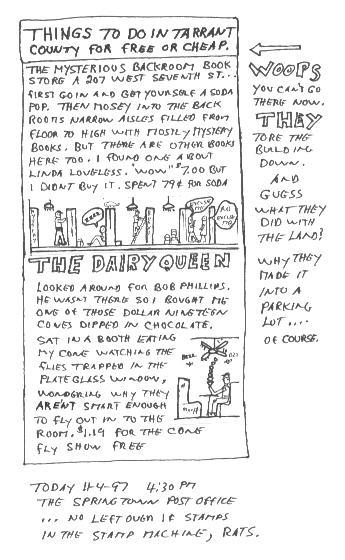 THINGS TO DO IN TARRANT
COUNTY FOR FREE OR CHEAP.
THE MYSTERIOUS BACKROOM BOOK
STORE A 207 WEST SEVENTH ST...
FIRST GO IN AND GET YOURSELF A SODA
POP. THEN MOSEY INTO THE BACK
ROOMS NARROW AISLES FILLED FROM
FLOOR TO HIGH WITH MOSTLY MYSTERY
BOOKS. BUT THERE ARE OTHER BOOKS
HERE TOO. I FOUND ONE ABOUT
LINDA LOVELESS. "WOW" $7.00 BUT
I DIDNT BUY IT. SPENT 79¢ FOR SODA
THE DAIRY QUEEN
LOOKED AROUND FOR BOB PHILLIPS.
HE WASN'T THERE SO I BOUGHT ME
ONE OF THOSE DOLLAR NINETEEN
CONES DIPPED IN CHOCOLATE.
SAT IN A BOOTH EATING
MY CONE WATCHING THE
FLIES TRAPPED IN THE
PLATE GLASS WINDOW,
WONDERING WHY THEY
ARENT SMART ENOUGH
TO FLY OUT IN TO THE
ROOM. $1.19 FOR THE CONE
FLY SHOW FREE
WOOPS
YOU CAN'T GO
THERE NOW.
THEY
TORE THE
BUILDING
DOWN.
AND
GUESS
WHAT THEY
DID WITH
THE LAND?
WHY THEY
MADE IT
INTO A
PARKING
LOT....
OF COURSE.
TODAY 11-4-97 4:30 PM
THE SPRINGTOWN POST OFFICE
... NO LEFT OVER 1¢ STAMPS
IN THE STAMP MACHINE, RATS.